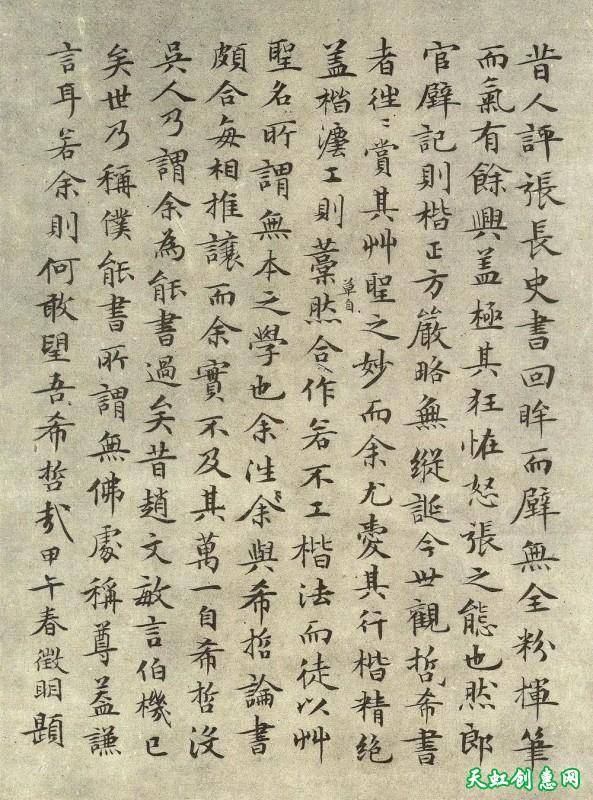 昔人評張長史書回眸而壁無全粉揮筆
而氣有餘興盖極其狂怪怒張之態也然郎
官壁記則楷正方嚴略無縱誕今世觀哲希書
者徃〻賞其艸聖之妙而余尤愛其行楷精絶
盖楷灋工則藁草自然合作若不工楷法而徒以艸
聖名所謂無本之學也余往余與希哲論書
頗合每相推讓而余實不及其萬一自希哲沒
吳人乃謂余為能書過矣昔趙文敏言伯機已
矣世乃稱僕能書所謂無佛處稱尊盖謙
言耳若余則何敢望吾希哲哉甲午春徵明題
天虹创意网